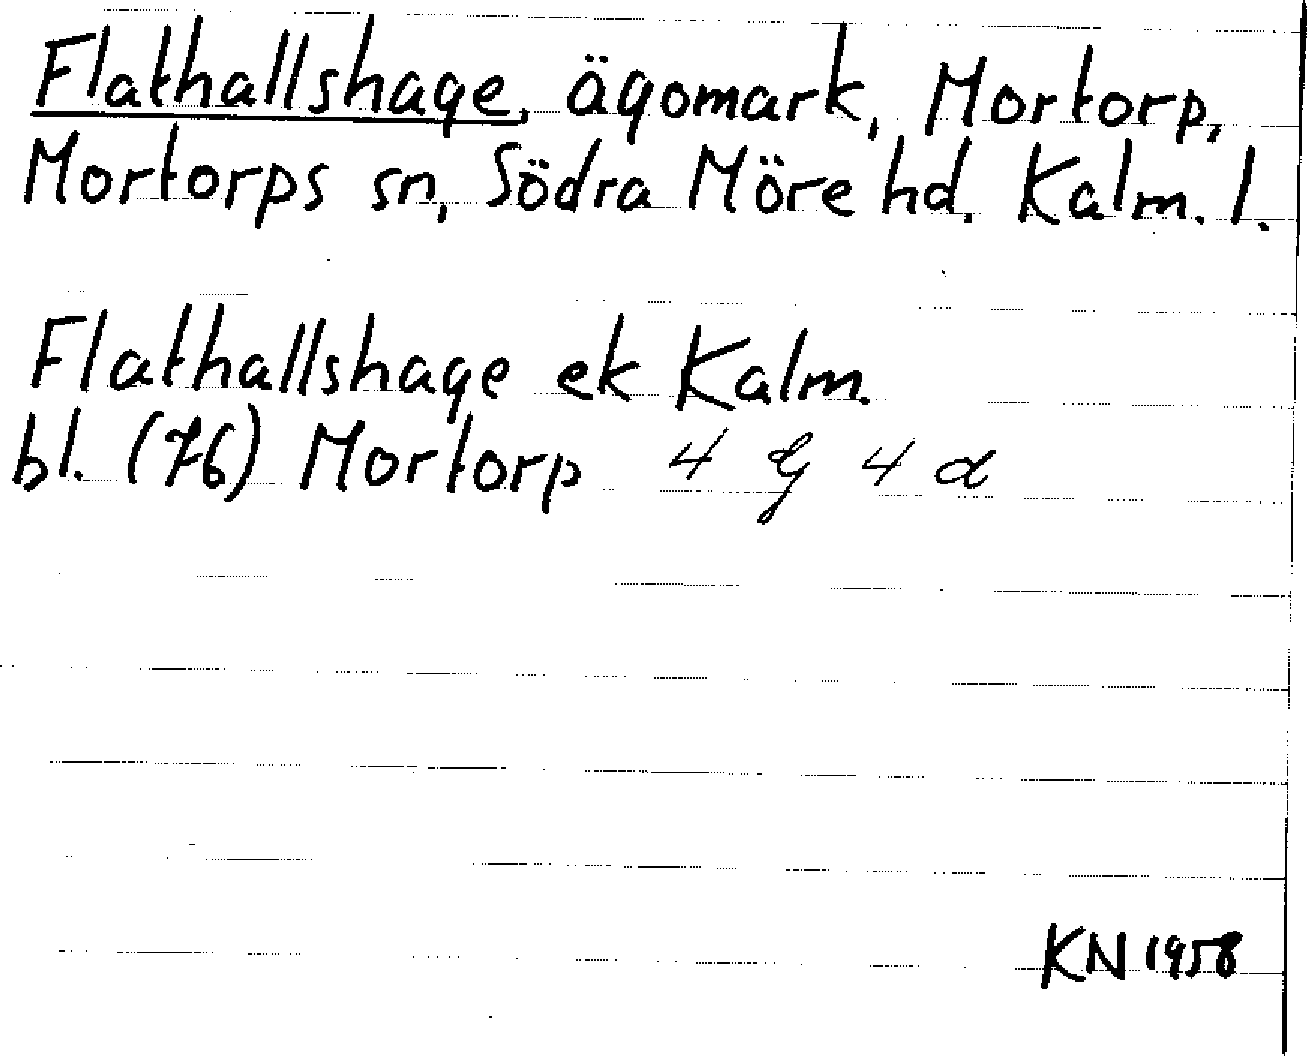 Flathallshage, ägomark, Mortorp,
Mortorps sn, Södra Möre hd. Kalm. l.
Flathallshage ek Kalm.
bl. (76) Mortorp 4 G 4 d
KN 1958